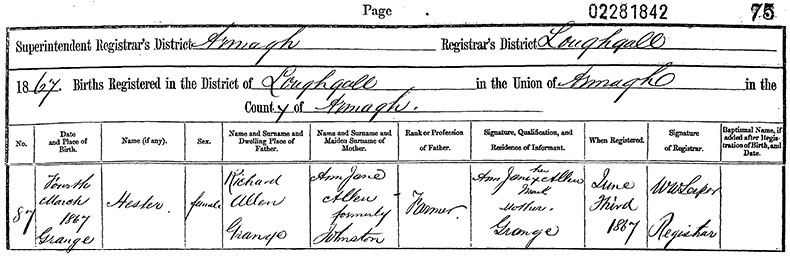 Page 02281842 75
Superintendent Registrar's District Armagh Registrar's District Loughgall
1867. Births Registered in the District of Loughgall in the Union of Armagh in the
County of Armagh.
No.
Date and Place of Birth.
Name (if any).
Sex.
Name and Surname and Dwelling Place of Father.
Name and Surname and Maiden Surname of Mother.
Rank or Profession of Father.
Signature, Qualification, and Residence of Informant.
When Registered.
Signature of Registrar.
Baptismal Name, if added after Registration of Birth, and Date.
87
Fourth
March
1867
Grange
Hester.
female
Richard
Allen
Grange
Ann Jane
Allen
formerly
Johnston
Farmer.
her
Ann Jane x Allen
Mark
Mother.
Grange
June
Third
1867
Registrar